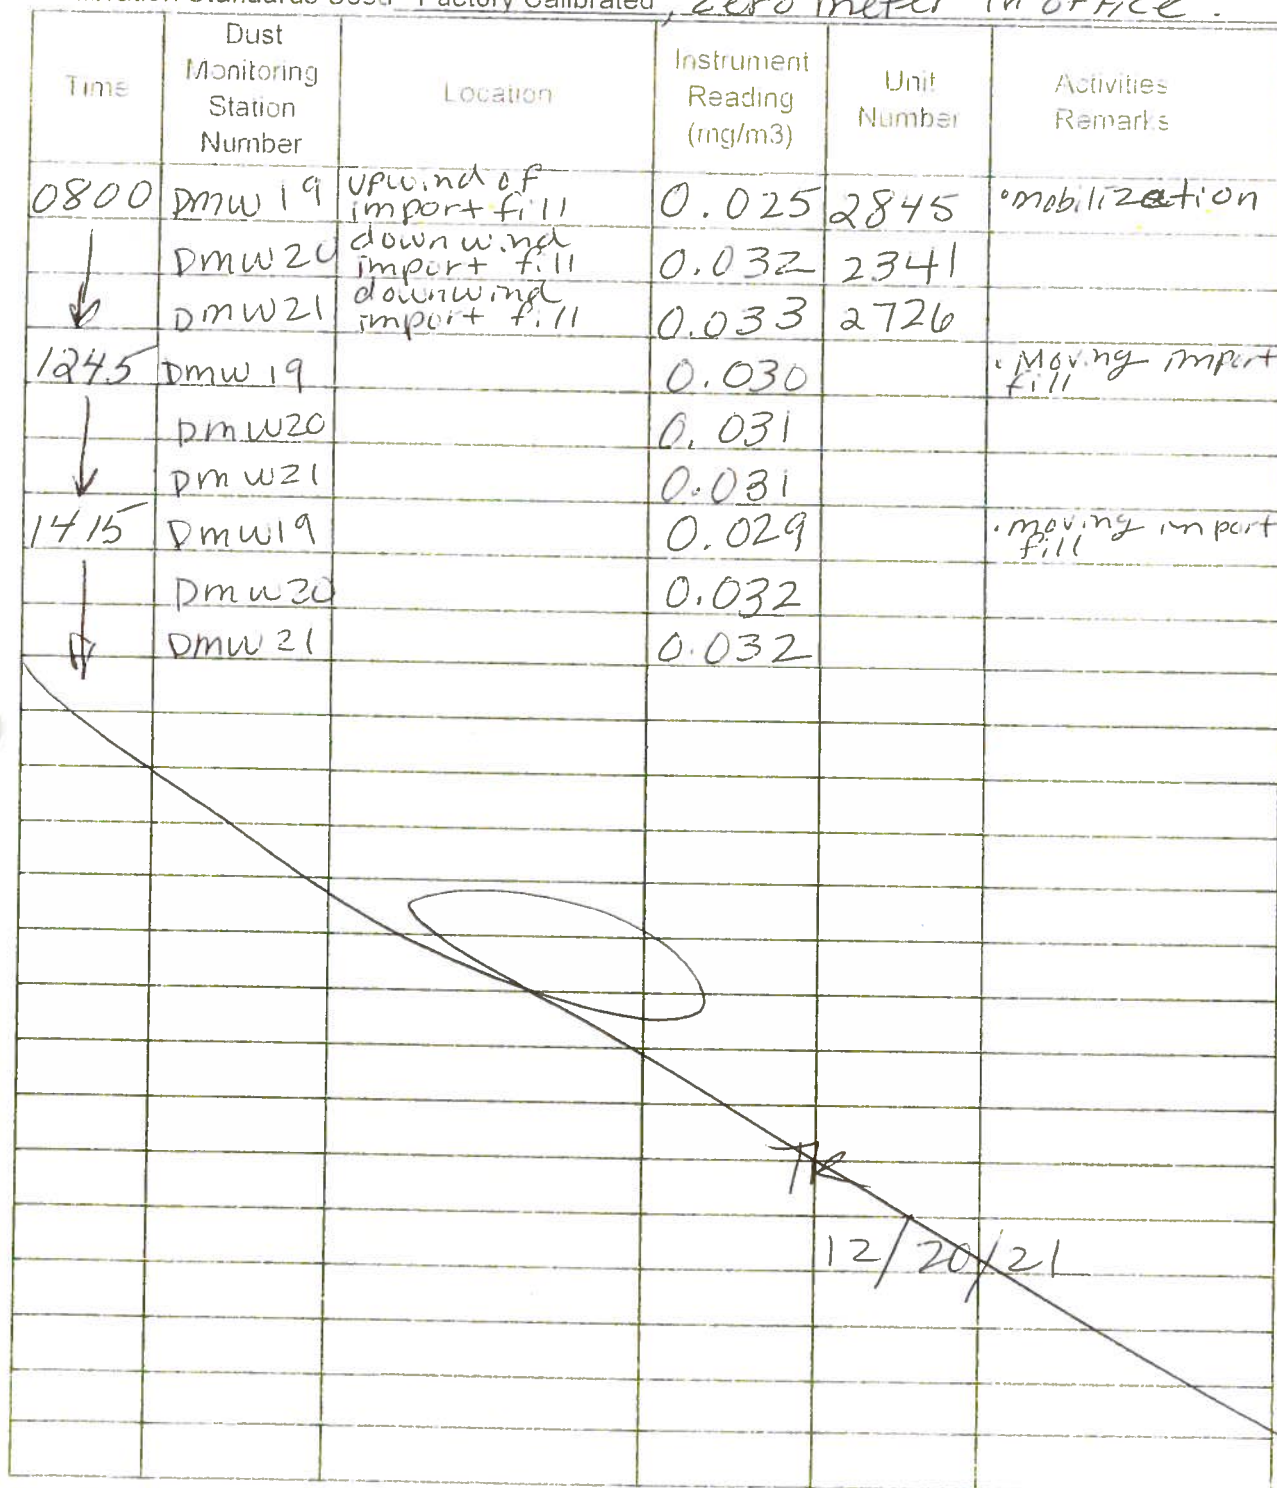 Standards Used - Factory Calibrated, Zero meter in office.
Time Dust Monitoring Station Number Location Instrument Reading (mg/m3) Unit Number Activities Remarks
0800 Dmw 19 upwind of import fill 0.025 2845 •mobilization
Dmw20 downwind import fill 0.032 2341
Dmw21 downwind import fill 0.033 2726
1245 Dmw 19 0.030 •Moving import fill
Dmw20 0.031
Dmw21 0.031
1415 Dmw19 0.029 •moving import fill
Dmw20 0.032
Dmw21 0.032
12/20/21